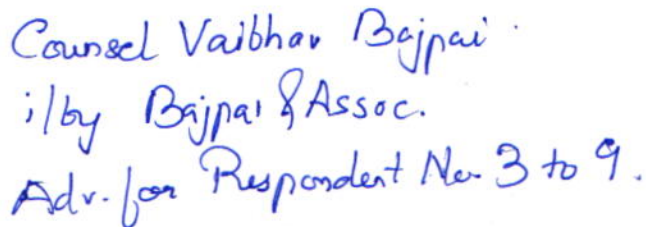 Counsel Vaibhav Bajpai.
i/by Bajpai & Assoc.
Adv. for Respondent No. 3 to 9.